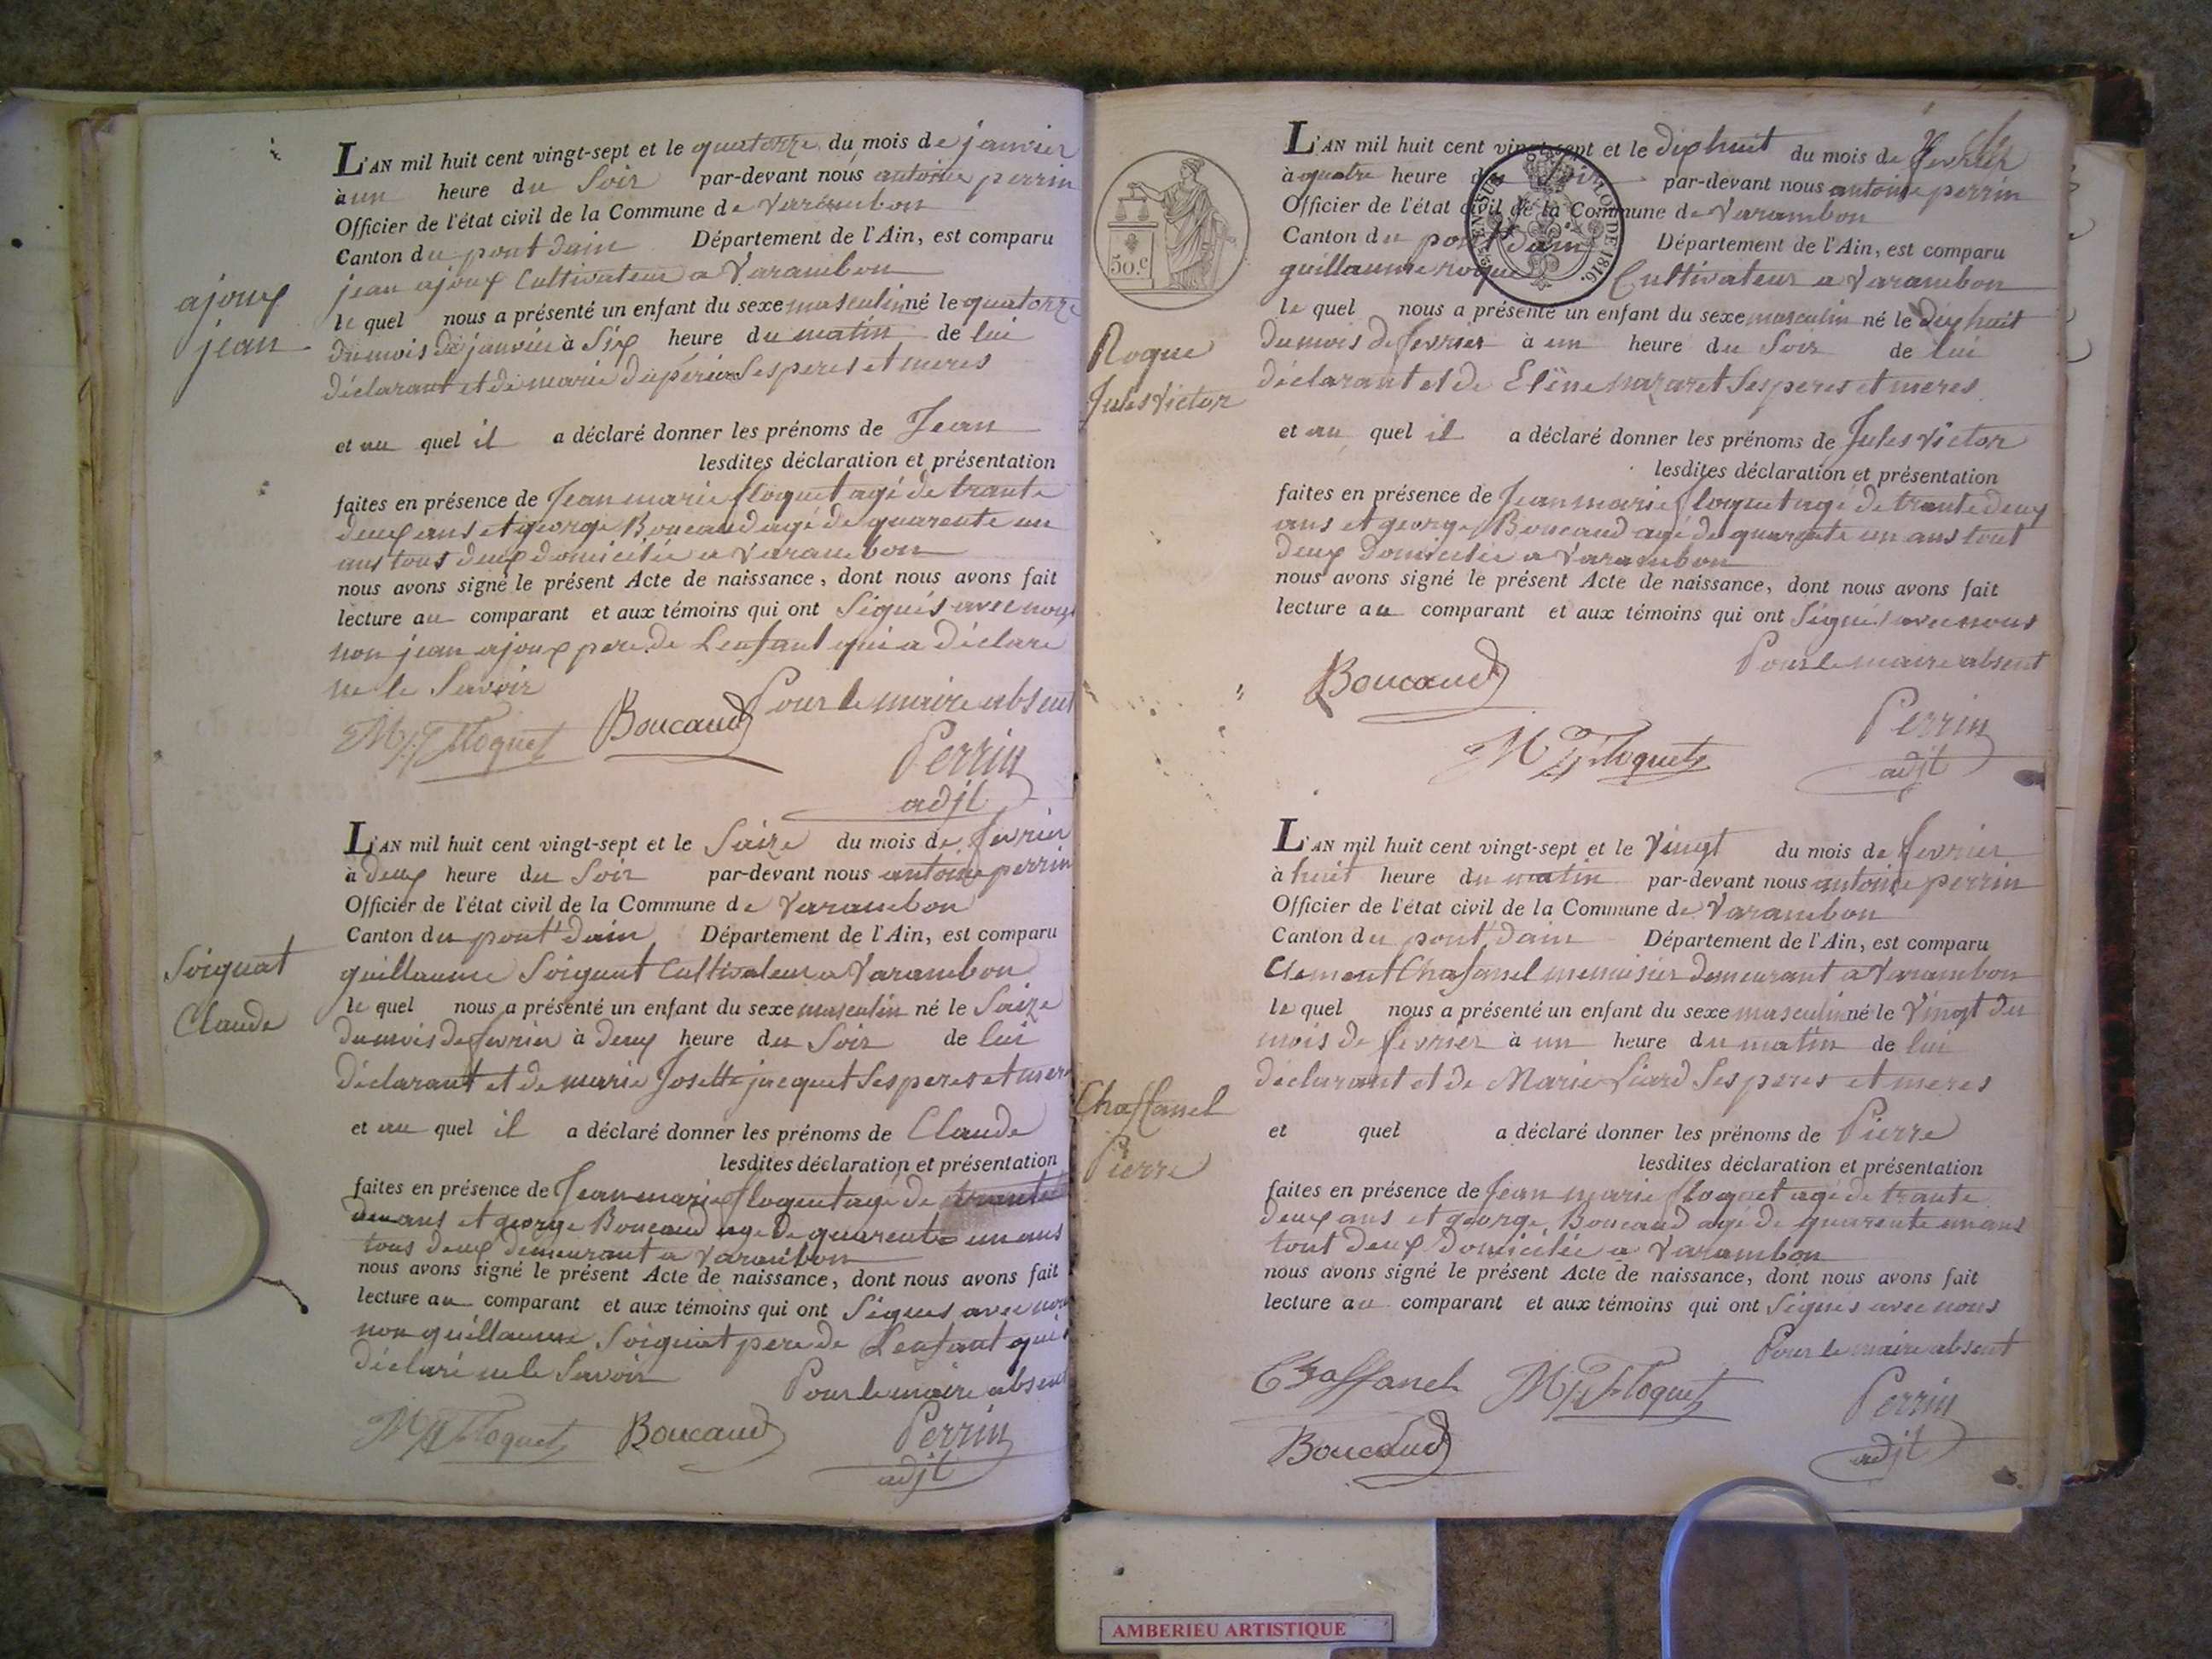 L'AN mil huit cent vingt-sept et le quatorze du mois de janvier
à un heure du Soir par-devant nous antoine perrin
Officier de l'état civil de la Commune de Varambon
Canton du pont dain Département de l'Ain, est comparu
jean ajoux Cultivateur a Varambon
le quel nous a présenté un enfant du sexe masculin né le quatorze
du mois de janvier à Six heure du matin de lui
déclarant et de marie Ses peres et meres
et au quel il a déclaré donner les prénoms de Jean
lesdites déclaration et présentation
faites en présence de Jean marie floquet agé de trante
deux ans et george Boucaud agé de quarente un
ans tous deux domicilié a Varambon
nous avons signé le présent Acte de naissance, dont nous avons fait
lecture au comparant et aux témoins qui ont Signés avec nous
non jean ajoux pere de Lenfant qui a déclare
ne le Savoir
Pour le maire absent
Floquet Boucaud Perrin
adjt
ajoux
jean
L'AN mil huit cent vingt-sept et le Saize du mois de fevrier
à deux heure du Soir par-devant nous antoine perrin
Officier de l'état civil de la Commune de Varambon
Canton du pont dain Département de l'Ain, est comparu
guillaume Soignat Cultivateur a Varambon
le quel nous a présenté un enfant du sexe masculin né le Saize
du mois de fevrier à deux heure du Soir de lui
déclarant et de marie Josette jacquet Ses peres et mere
et au quel il a déclaré donner les prénoms de Claude
lesdites déclaration et présentation
faites en présence de Jean marie floquet agé de trante
deux ans et george Boucaud age de quarente un ans
tous deux demeurant a Varambon
nous avons signé le présent Acte de naissance, dont nous avons fait
lecture au comparant et aux témoins qui ont Signés avec nous
non guillaume Soignat pere de Lenfant qui
déclaré ne le Savoir
Pour le maire absent
Floquet Boucaud Perrin
adjt
Soignat
Claude
L'AN mil huit cent vingt-sept et le dix huit du mois de fevrier
à quatre heure du Soir par-devant nous antoine perrin
Officier de l'état civil de la Commune de Varambon
Canton du pont dain Département de l'Ain, est comparu
guillaume roque Cultivateur a Varambon
le quel nous a présenté un enfant du sexe masculin né le dix huit
du mois de fevrier à un heure du Soir de lui
déclarant et de Eléne nazaret Ses peres et meres
et au quel il a déclaré donner les prénoms de Jules Victor
lesdites déclaration et présentation
faites en présence de Jean marie floquet agé de trante deux
ans et george Boucaud agé de quarente un ans tout
deux domicilie a Varambon
nous avons signé le présent Acte de naissance, dont nous avons fait
lecture au comparant et aux témoins qui ont Signés avec nous
Pour le maire absent
Boucaud
Floquet Perrin
adjt
50.c
LOI DE 1816.
Roque
Jules Victor
L'AN mil huit cent vingt-sept et le Vingt du mois de fevrier
à huit heure du matin par-devant nous antoine perrin
Officier de l'état civil de la Commune de Varambon
Canton du pont dain Département de l'Ain, est comparu
Clement Chafanel menuisier demeurant a Varambon
le quel nous a présenté un enfant du sexe masculin né le Vingt du
mois de fevrier à un heure du matin de lui
déclarant et de Marie Liard Ses peres et meres
et quel a déclaré donner les prénoms de Pierre
lesdites déclaration et présentation
faites en présence de Jean marie floquet agé de trante
deux ans et george Boucaud agé de quarente un ans
tout deux domicilié a Varambon
nous avons signé le présent Acte de naissance, dont nous avons fait
lecture au comparant et aux témoins qui ont Signés avec nous
Pour le maire absent
Chaffanel Floquet Perrin
Boucaud adjt
Chaffanel
Pierre
AMBERIEU ARTISTIQUE